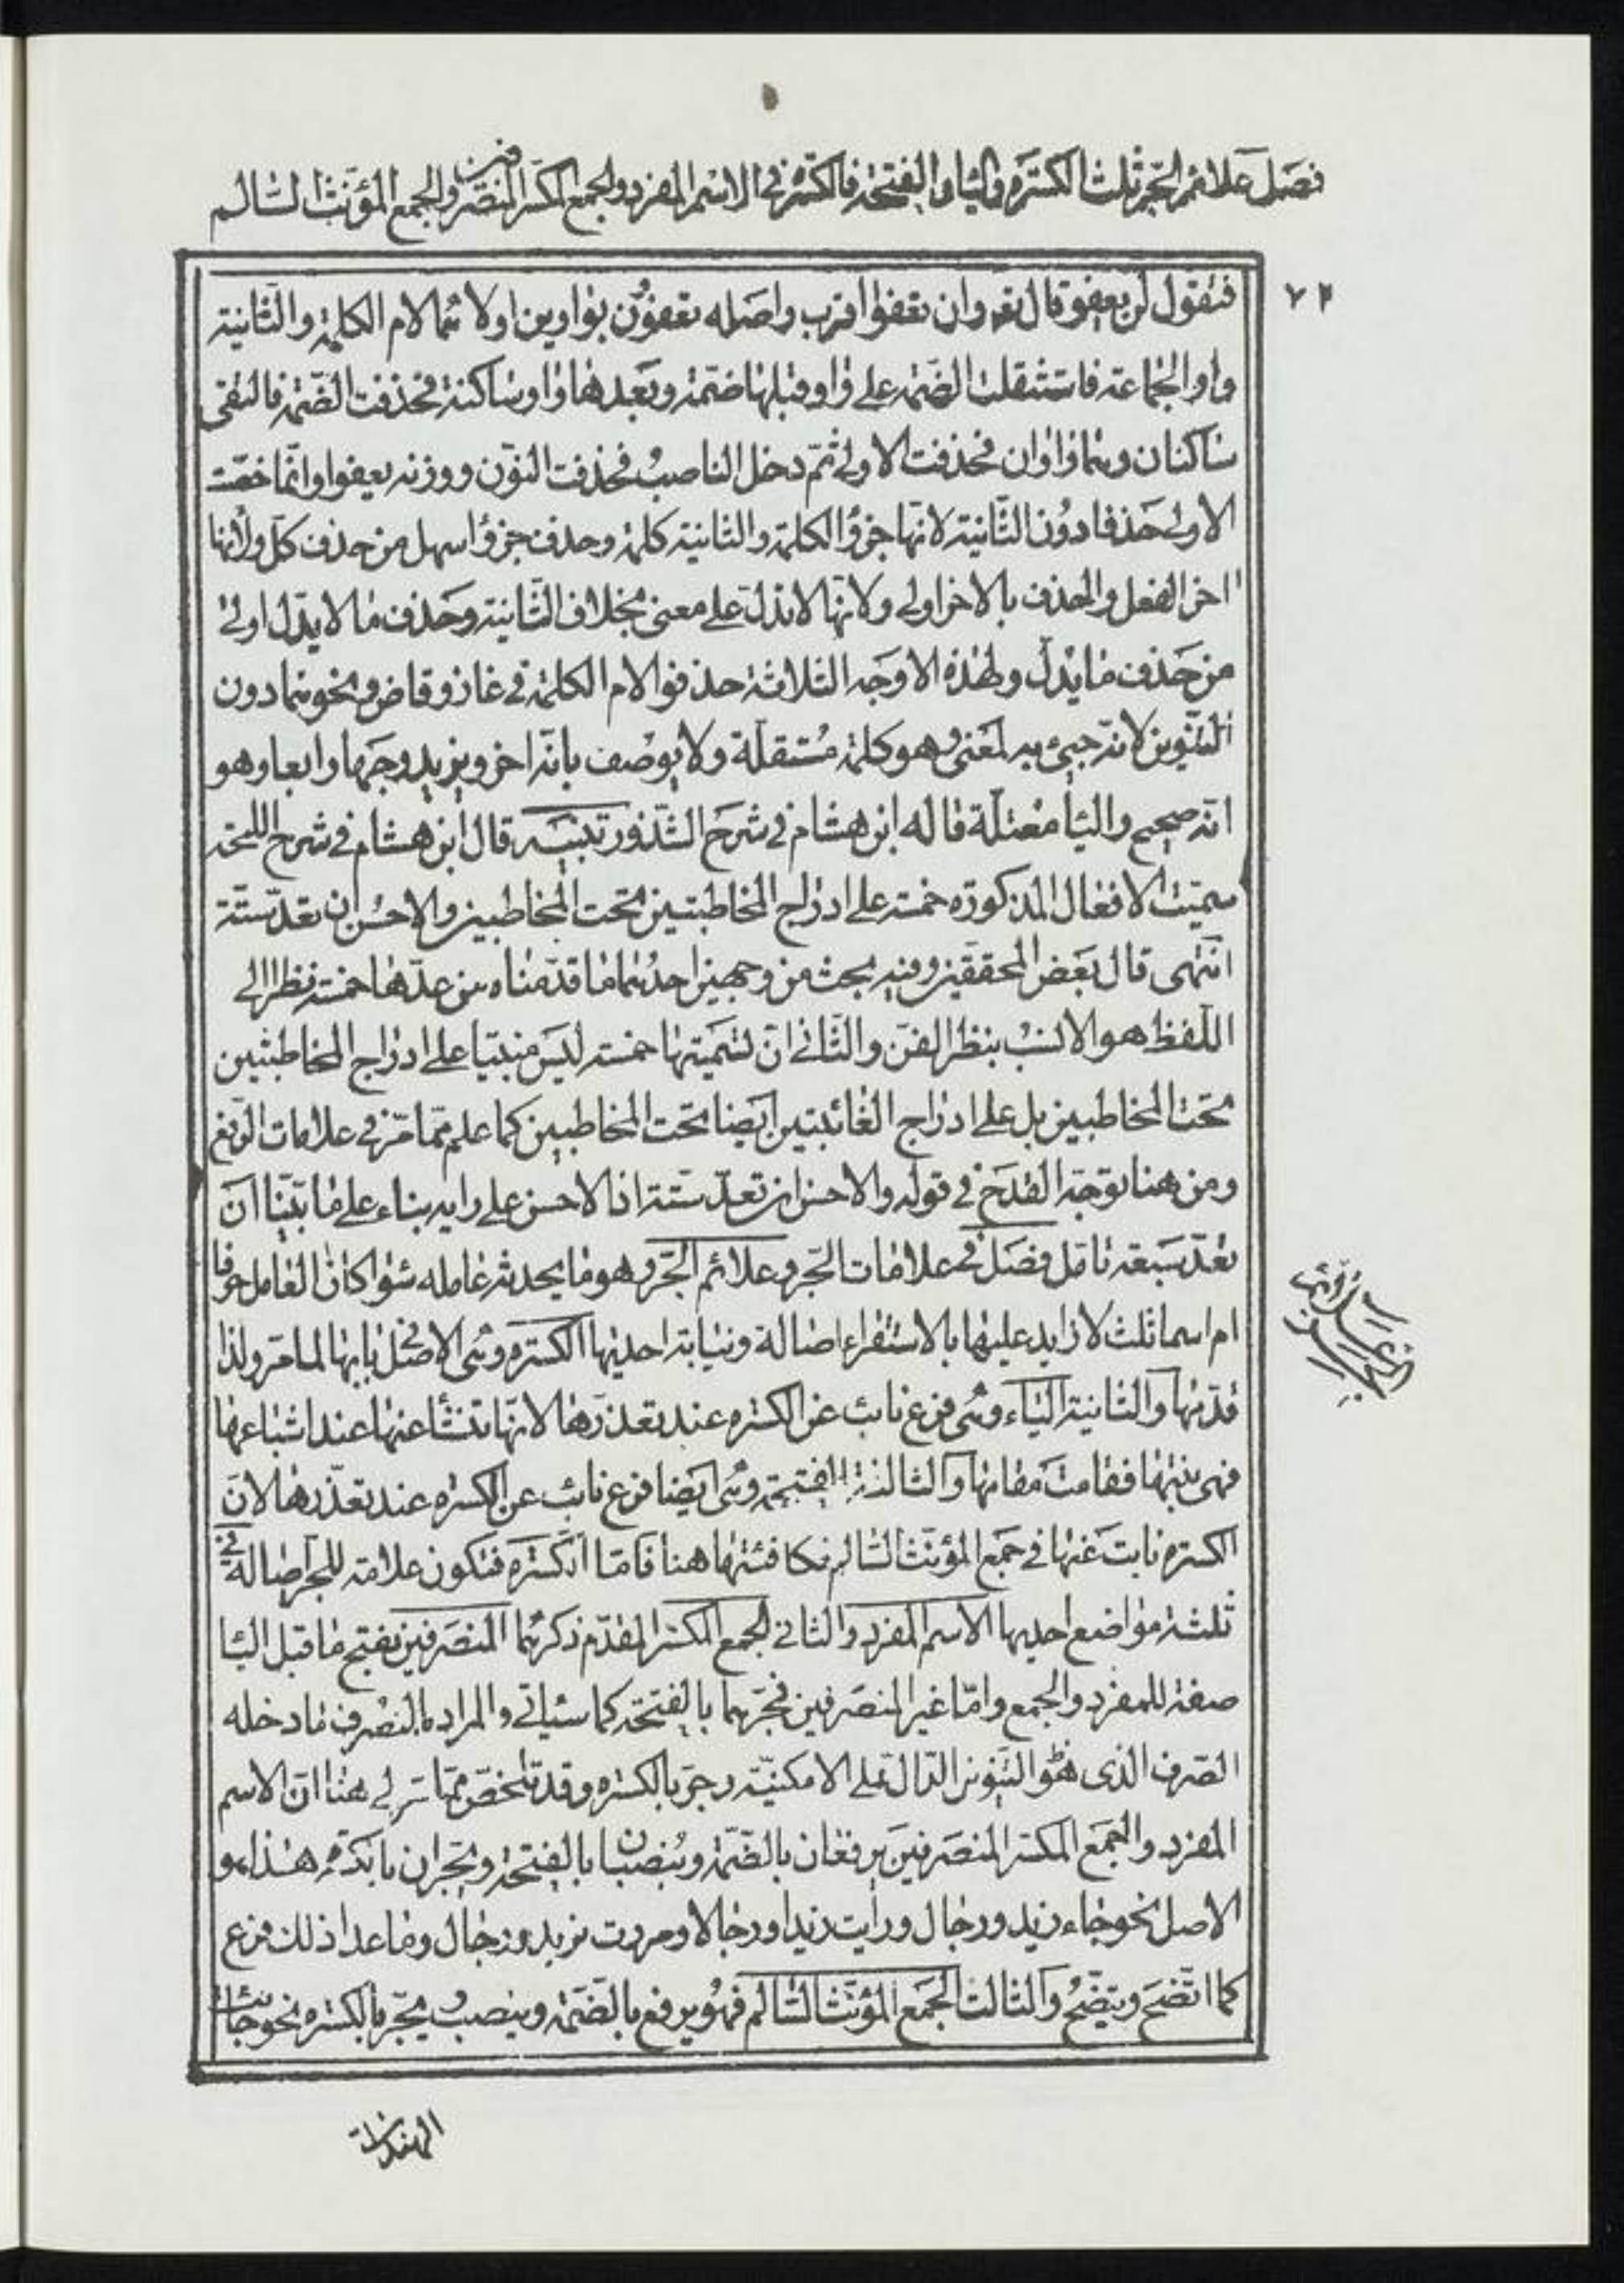 فصل علائم الجر ثلث الكسرة والياء والفتحة فالكسرة في الاسم المفرد والجمع المكسر المنصرفين والجمع المؤنث السالم
٧٢
فتقول لن يعفو قال تعه وان تعفوا اقرب واصله تعفوون بواوين اولاهما لام الكلمة والثانية
واو الجماعة فاستثقلت الضمة على واو وقبلها ضمة وبعدها واو ساكنة فحذفت الضمة فالتقى
ساكنان وهما واوان فحذفت الاولى ثم دخل الناصب فحذفت النون ووزنه يعفوا وانما خصت
الاولى حذفا دون الثانية لانها جزؤ الكلمة والثانية كلمة وحذف جزؤ اسهل من حذف كل ولانها
اخر الفعل والحذف بالاخر اولى ولانها لا تدل على معنى بخلاف الثانية وحذف ما لا يدل اولى
من حذف ما يدل ولهذه الاوجه الثلاثة حذفوا لام الكلمة في غاز وقاض ونحوهما دون
التنوين لانه جيئ به لمعنى وهو كلمة مستقلة ولا يوصف بانه اخر ويزيد وجها رابعا وهو
انه صحيح والياء معتلة قاله ابن هشام في شرح الشذور تنبيه قال ابن هشام في شرح اللمحة
سميت الافعال المذكورة خمسة على ادراج المخاطبتين تحت المخاطبين والاحسن ان تعد ستة
انتهى قال بعض المحققين وفيه بحث من وجهين احدهما ما قدمناه من عدها خمسة نظرا الى
اللفظ هو الانسب بنظر الفن والثاني ان تسميتها خمسة ليس مبنيا على ادراج المخاطبتين
تحت المخاطبين بل على ادراج الغائبتين ايضا تحت المخاطبين كما علم مما مر في علامات الرفع
ومن هنا توجه القدح في قوله والاحسن ان تعد ستة اذ الاحسن على رايه بناء على ما بينا ان
تعد سبعة تامل فصل في علامات الجر وعلائم الجر وهو ما يحدثه عامله سواء كان العامل حرفا
ام اسما ثلث لا زايد عليها بالاستقراء اصالة ونيابة احديها الكسرة وهى الاصل بابها لما مر ولذا
قدمها والثانية الياء وهى فرع نائب عن الكسرة عند تعذرها لانها تنشأ عنها عند اشباعها
فهى بنتها فقامت مقامها والثالثة الفتحة وهى ايضا فرع نائب عن الكسرة عند تعذرها لان
الكسرة نابت عنها في جمع المؤنث السالم فكافئتها هنا فاما الكسرة فتكون علامة للجر اصالة في
ثلثة مواضع احديها الاسم المفرد والثاني الجمع المكسر المقدم ذكرهما المنصرفين بفتح ما قبل اليا
صفة للمفرد والجمع واما غير المنصرفين فجرهما بالفتحة كما سياتي والمراد بالمنصرف ما دخله
الصرف الذى هو التنوين الدال على الامكنية وجر بالكسرة وقد تلخص مما مر الى هنا ان الاسم
المفرد والجمع المكسر المنصرفين يرفعان بالضمة وينصبان بالفتحة ويجران بالكسرة هذا هو
الاصل نحو جاء زيد ورجال ورأيت زيدا ورجالا ومررت بزيد ورجال وما عدا ذلك فرع
كما اتضح ويتضح والثالث الجمع المؤنث السالم فهو يرفع بالضمة وينصب ويجر بالكسرة نحو جائت
الهندات